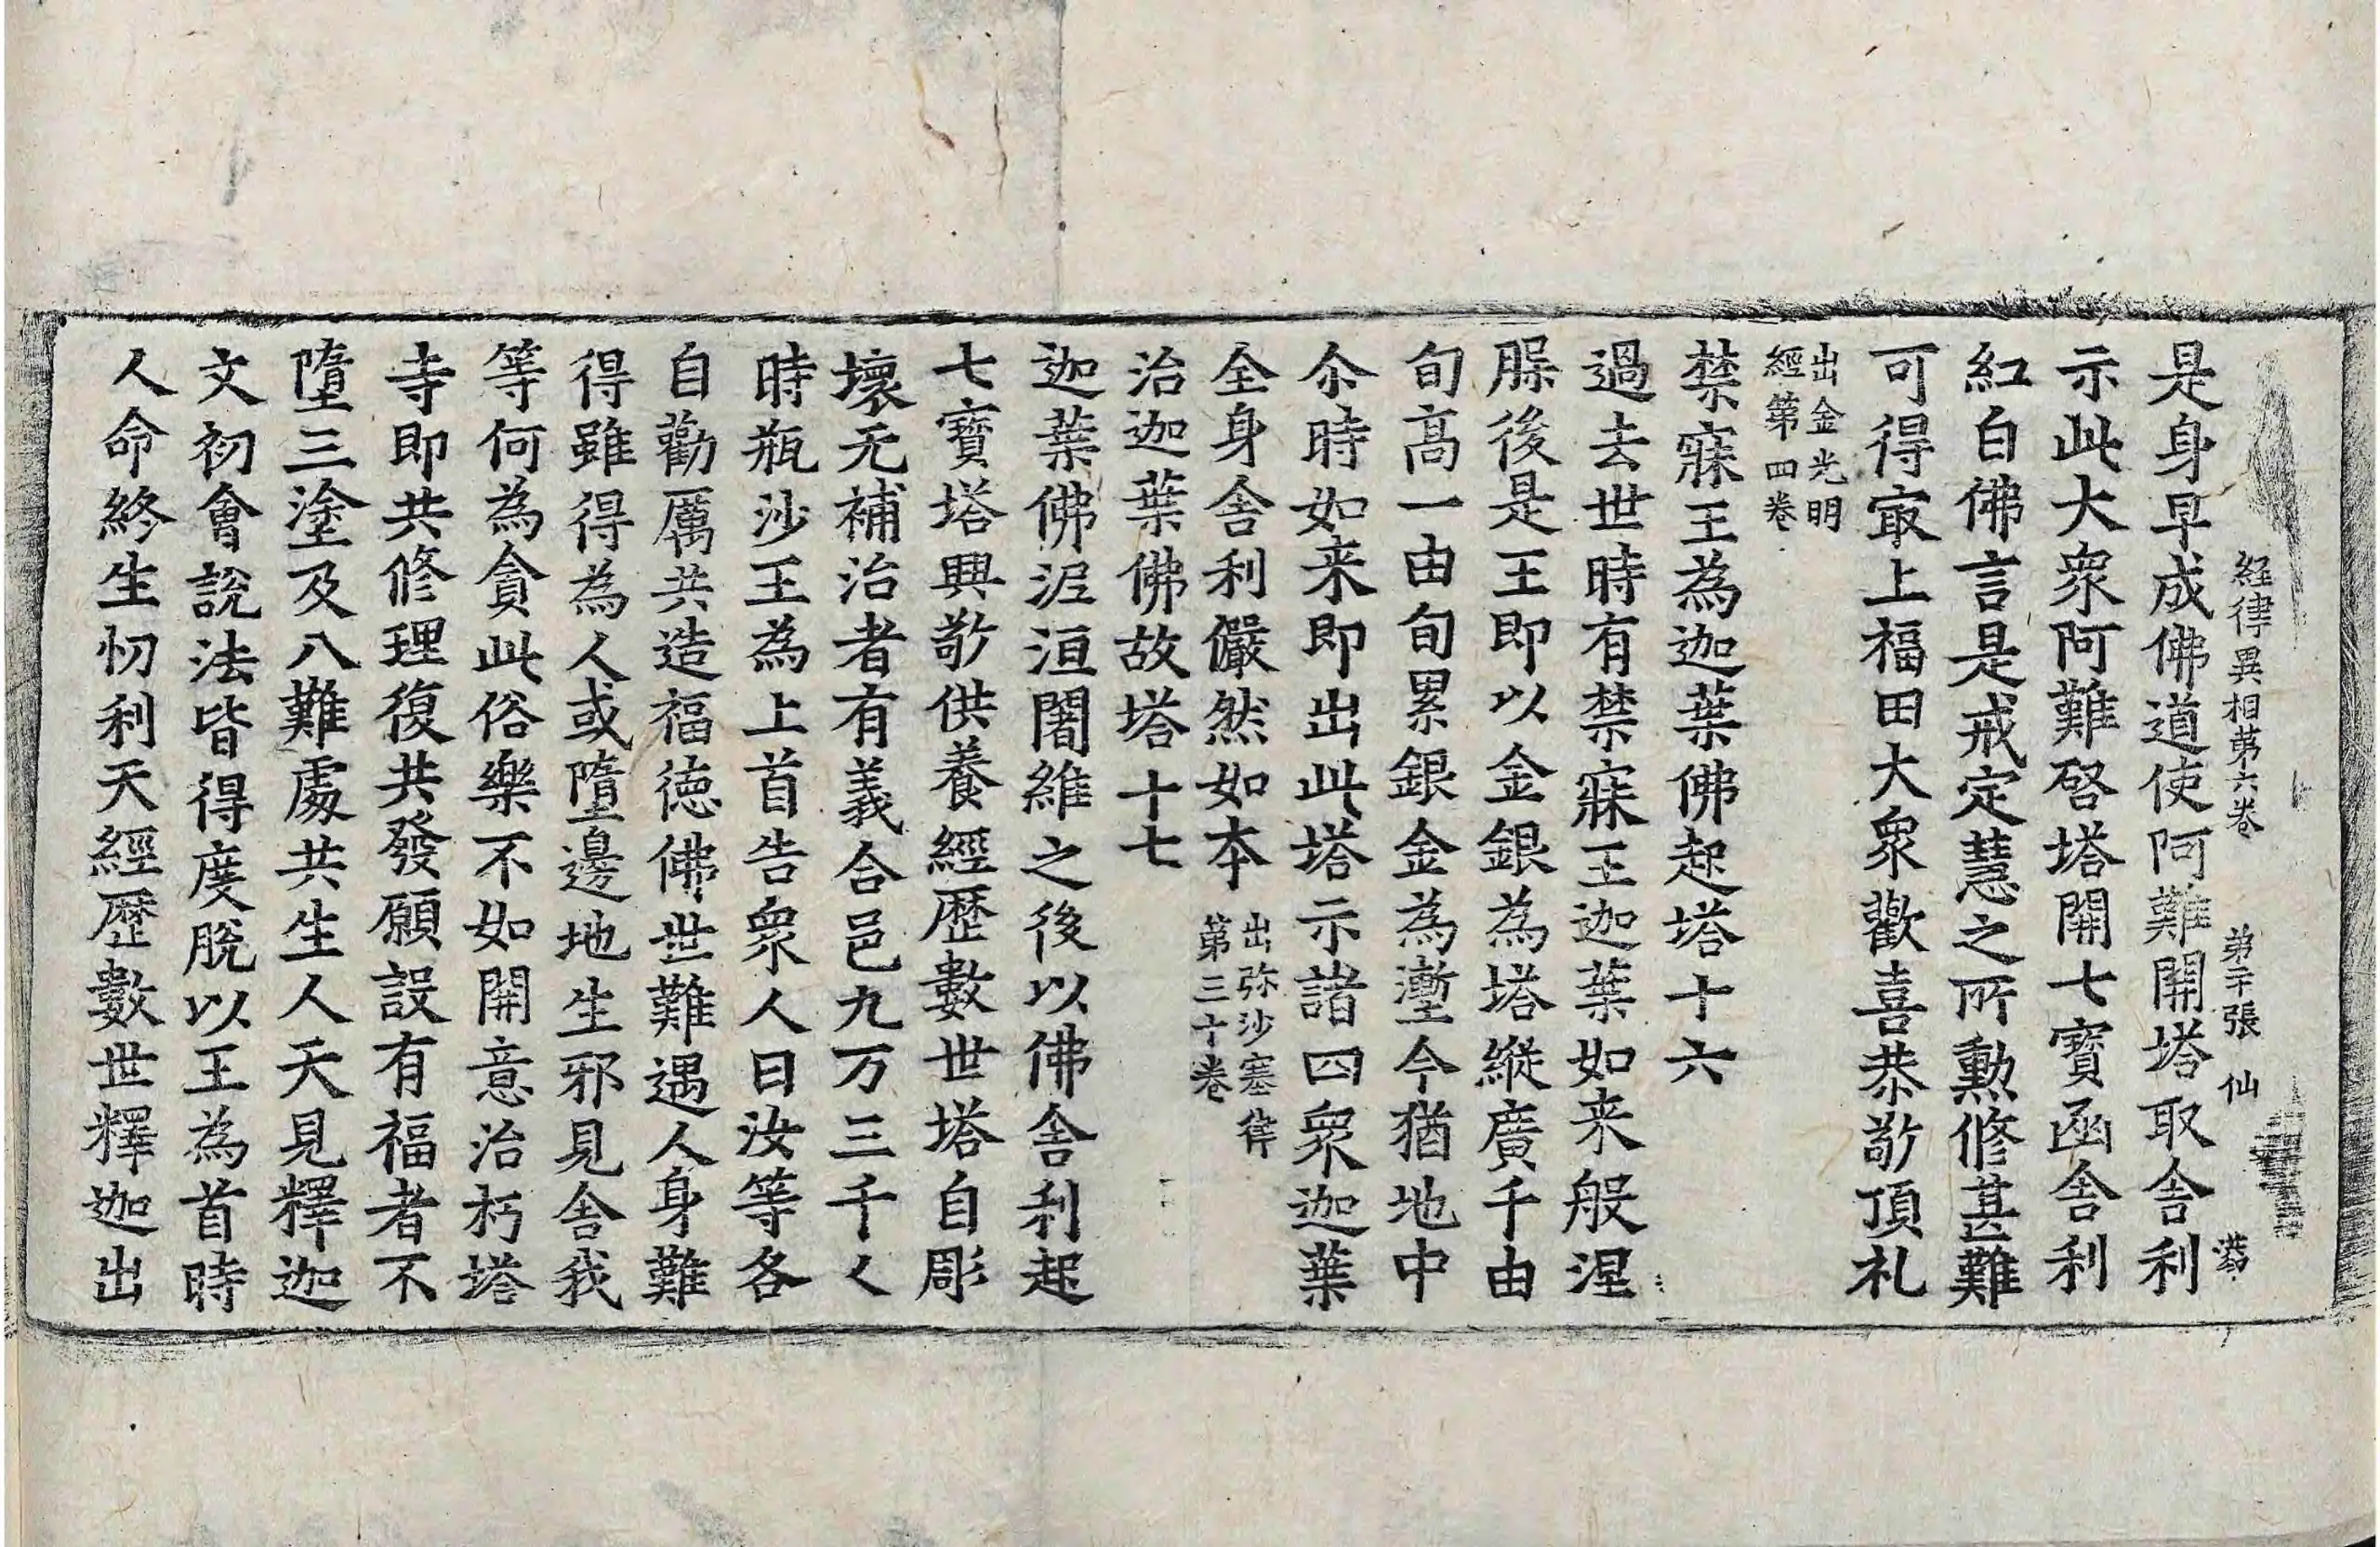 経律異相苐六卷 苐二十張 仙
是身早成佛道使阿難開塔取舎利
示此大衆阿難啓塔開七寳函舎利
紅白佛言是戒定慧之所勲修甚難
可得㝡上福田大衆歡喜恭敬頂礼
出金光明
經第四卷
禁寐王為迦葉佛起塔十六
過去世時有禁寐王迦葉如来般涅
䏶後是王即以金銀為塔縱廣千由
旬高一由旬累銀金為壍今猶地中
尒時如来即出此塔示諸四衆迦葉
全身舎利儼然如本
出弥沙塞律
第三十卷
治迦葉佛故塔十七
迦葉佛泥洹闍維之後以佛舎利起
七寳塔興敬供養經歷數世塔自彫
壞无補治者有義合邑九万三千人
時瓶沙王為上首告衆人曰汝等各
自勸厲共造福徳佛世難遇人身難
得雖得為人或墮邊地生邪見舎我
等何為貪此俗樂不如開意治朽塔
寺即共修理復共發願設有福者不
墮三塗及八難處共生人天見釋迦
文初會說法皆得度脫以王為首時
人命終生忉利天經歷數世釋迦出